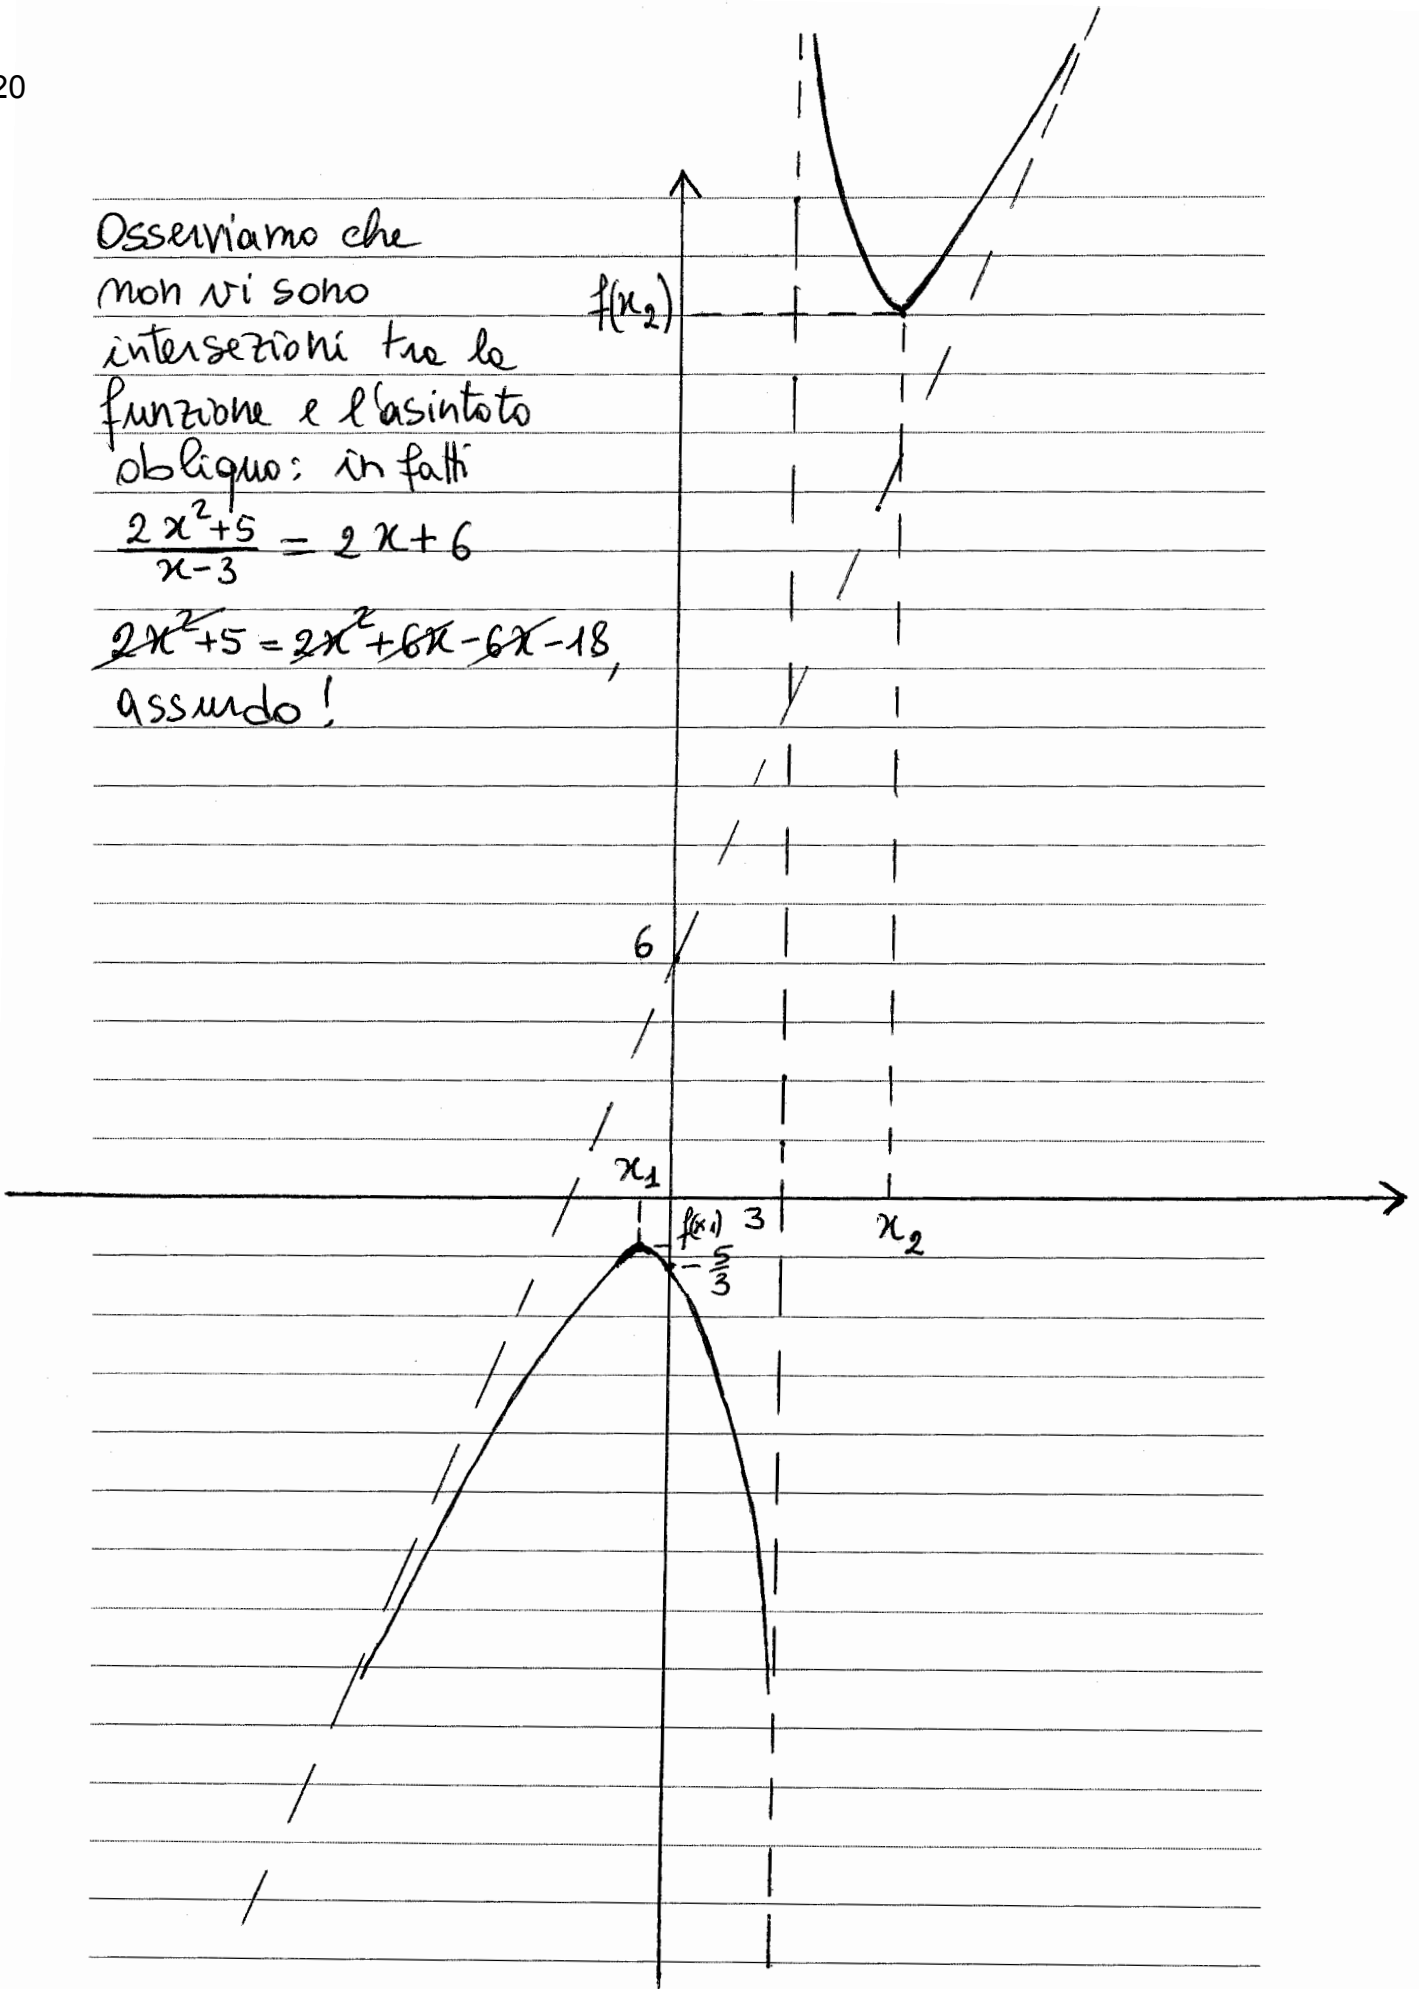 20
Osserviamo che
non vi sono
intersezioni tra la
funzione e l'asintoto
obliquo: infatti
(2x²+5)/(x-3) = 2x+6
2x²+5=2x²+6x-6x-18,
assurdo!
f(x₂)
6
x₁
f(x₁)
3
x₂
-5/3